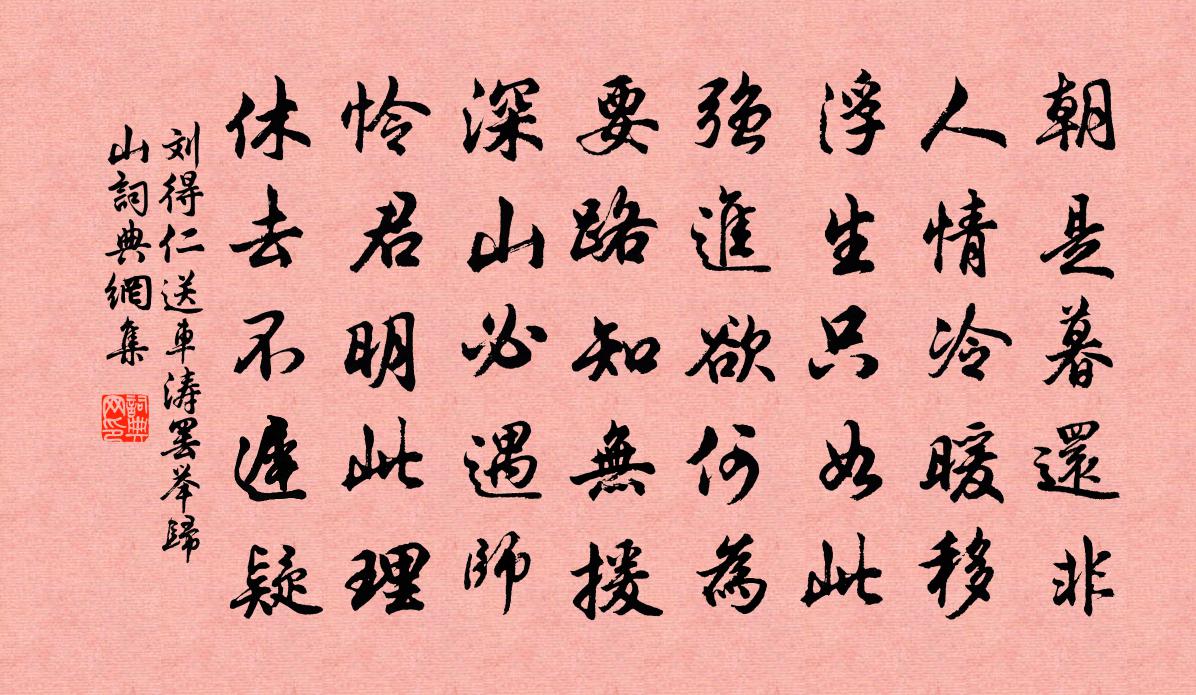 朝是暮還非
人情冷暖移
浮生只如此
強進欲何為
要路知無援
深山必遇師
怜君明此理
休去不遲疑
刘得仁送車涛罢举歸
山詞典網集
詞典网印